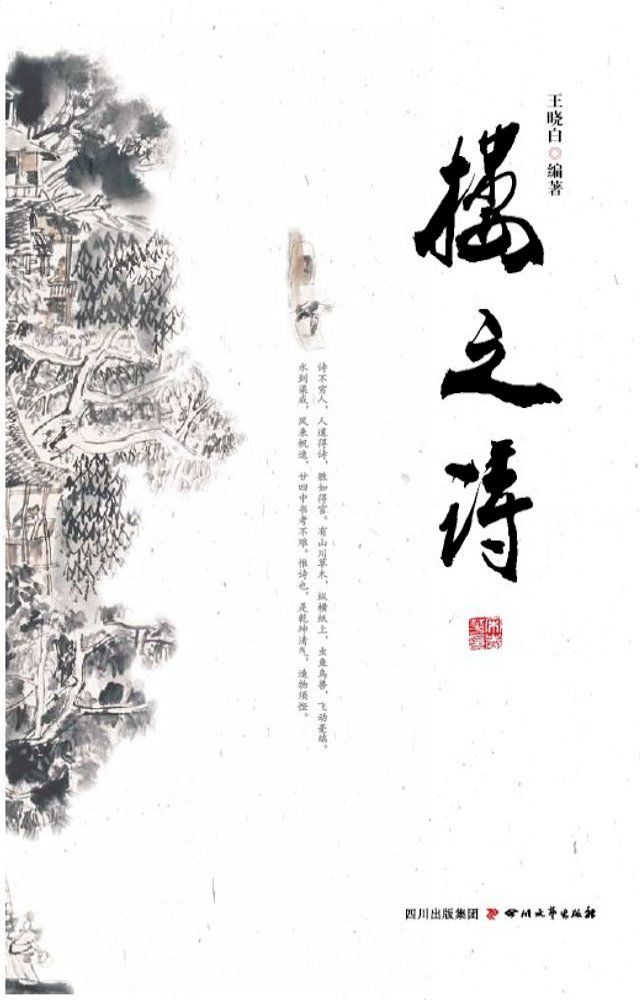 王晓白◎编著
樓之诗
诗不穷人，人道得诗，胜如得官。有山川草木，纵横纸上，虫鱼鸟兽，飞动毫端。
水到渠成，风来帆速，廿四中书考不难。惟诗也，是乾坤清气，造物须悭。
四川出版集团 四川文艺出版社